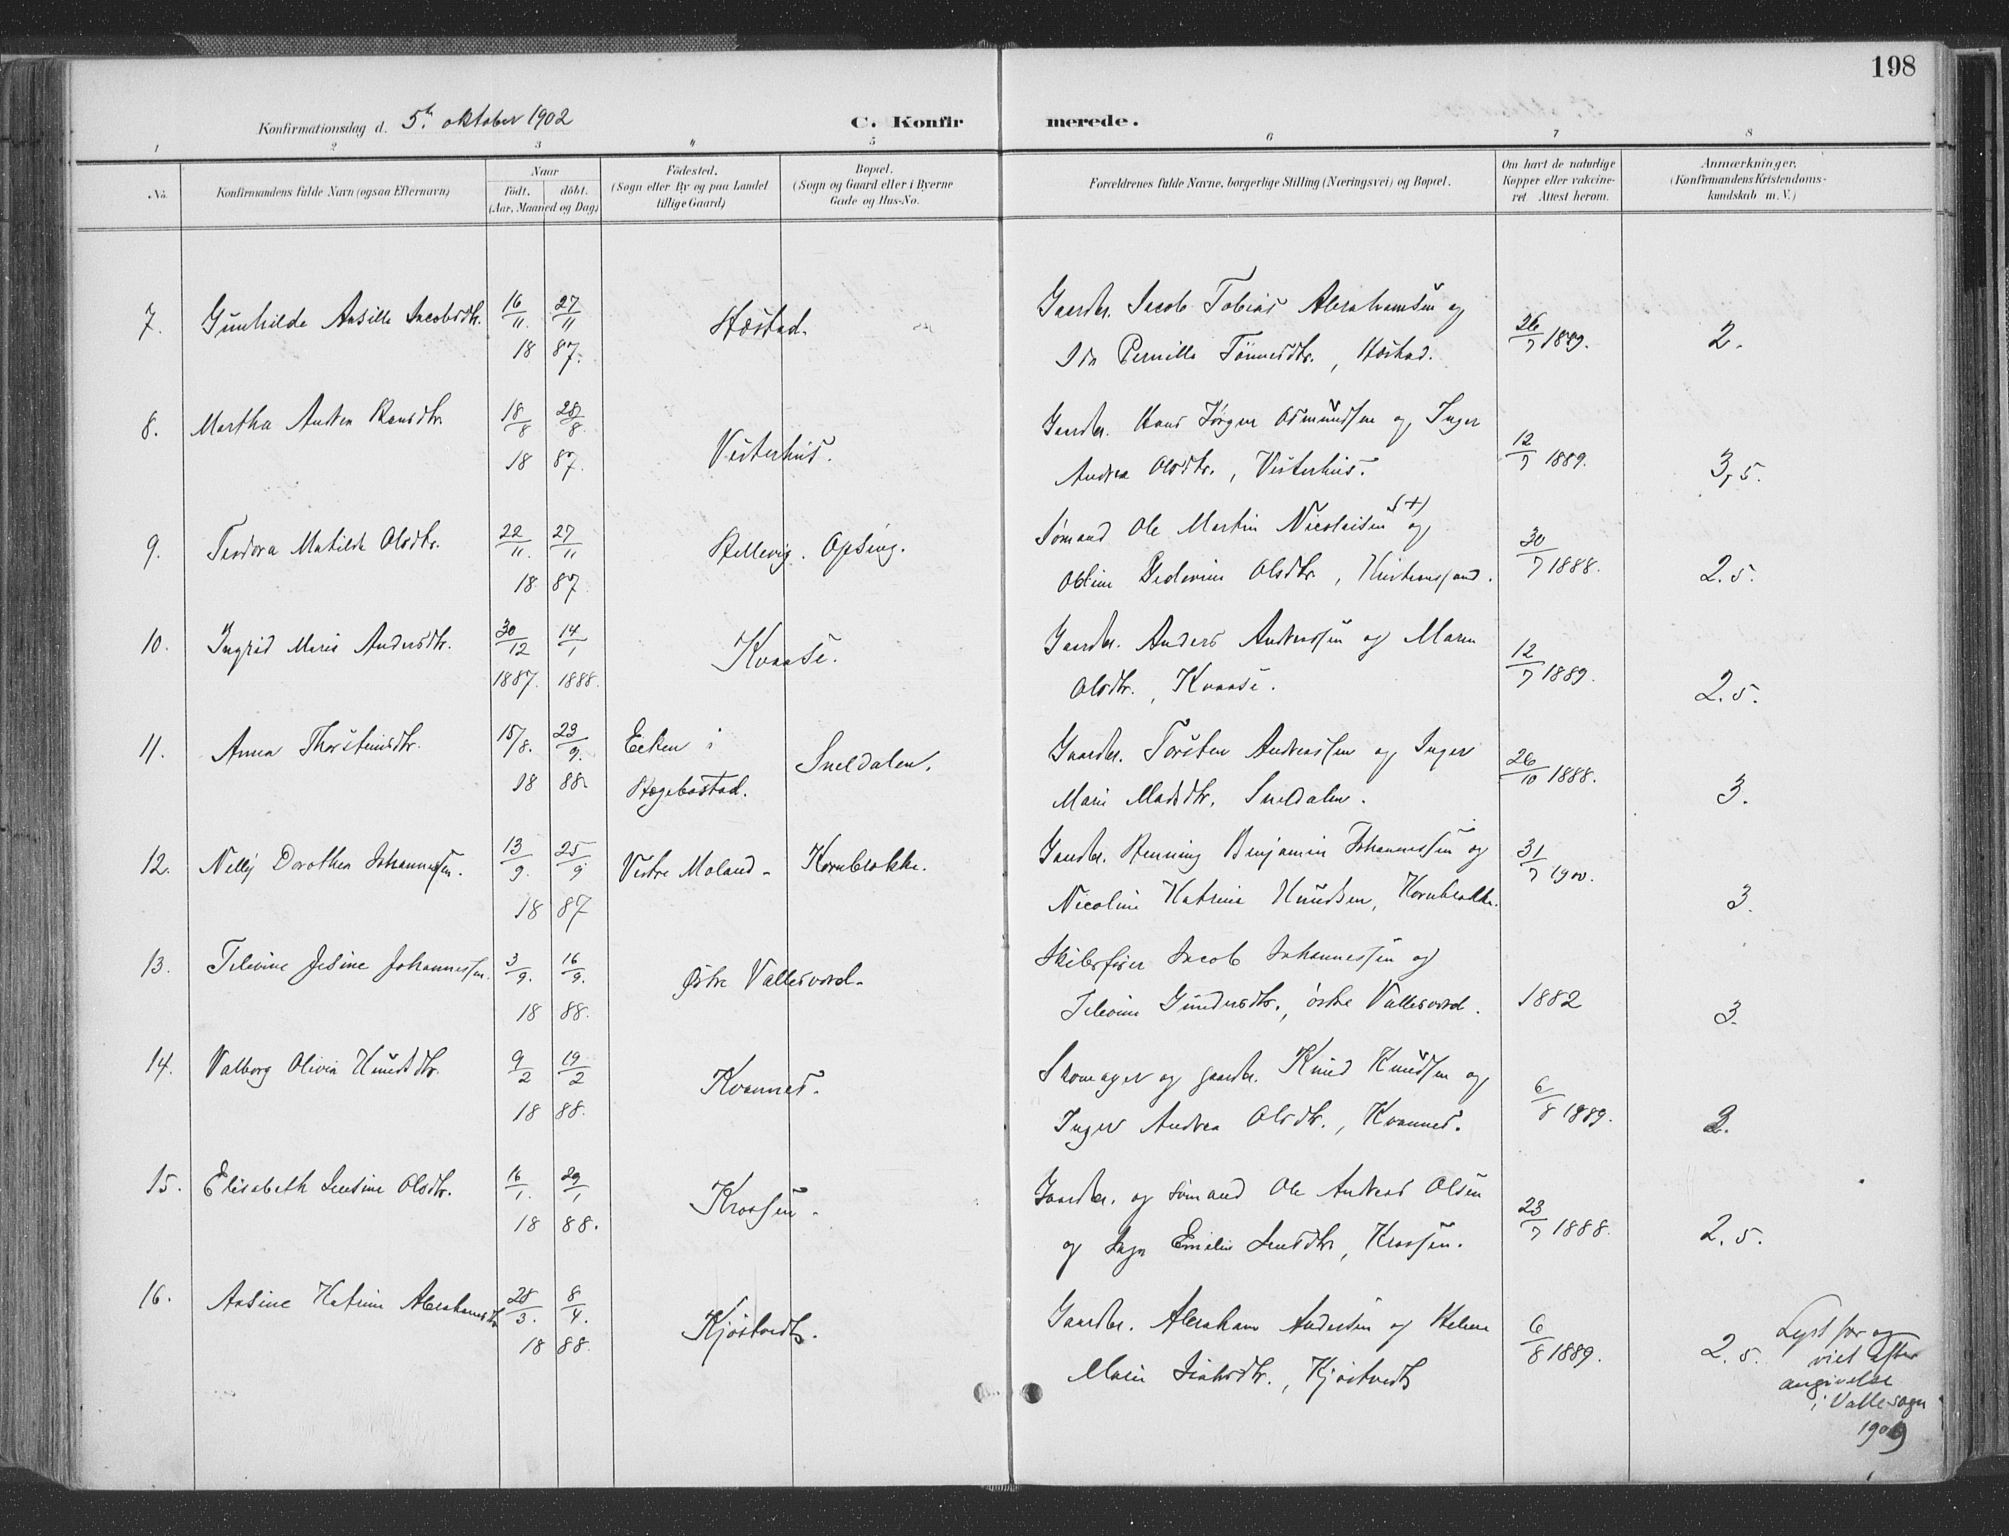 198
Konfirmationsdag d. 5te oktober 1902 C. Konfirmerede.
1 2 3 4 5 6 7 8
No. Konfirmandens fulde Navn (ogsaa Efternavn) Naar født. døbt. (Aar, Maaned og Dag) Fødested. (Sogn eller By og paa Landet tillige Gaard) Bopæl. (Sogn og Gaard eller i Byerne Gade og Hus-No. Forældrenes fulde Navne, borgerlige Stilling (Næringsvei) og Bopæl. Om havt de naturlige Kopper eller vakcineret Attest herom. Anmærkninger, (Konfirmandens Kristendomskundskab m. V.)
7. Gunhilde Aasille Jacobsdtr. 16/11 27/11 Høstad. Gaardbr. Jacob Tobias Abrahamsen og
18 87. Ida Pernille Tønnesdtr., Høstad. 26/7 1889. 2.
8. Martha Andrea Hansdtr. 18/8 28/8. Vesterhus. Gaardbr. Hans Jørgen Osmundsen og Inger
18 87. Andrea Olsdtr., Vesterhus. 12/7 1889. 3,5.
9. Teodora Matilde Olsdtr. 22/11. 27/11 Hellevig. Opsing. Sømand Ole Martin Nicolaisen (+) og
18 87. Oline Olsdtr., Kristianssand. 30/7 1888. 2.5.
10. Ingrid Marie Andersdtr. 30/12 14/1 Kvaase. Gaardbr. Anders Andreassen og Maren
1887. 1888. Olsdtr., Kvaase. 12/7 1889. 2.5.
11. Anna Thorsteinsdtr. 15/8. 23/9. Eeken i Sneldalen. Gaardbr. Torsten Andreassen og Inger
18 88. Hægebostad. Marie Madsdtr. Sneldalen. 26/10 1888. 3.
12. Nelly Dorothea Johannessen. 13/9. 25/9 Vestre Moland - Kornbrokke. Gaardbr. Henning Benjamin Johannessen og
18 87 Nicoline Katrine Knudsen, Kornbrokke. 31/7 1900. 3.
13. Televine Jesine Johannessen. 3/9. 16/9. Østre Vallesverd. Skibsfører Jacob Johannessen og
18 88. Televine Gundersdtr., østre Vallesverd. 1882 3.
14. Valborg Olivia Knudsdtr. 9/2 19/2 Kvannes. Skomager og gaardbr. Knud Knudsen og
18 88. Inger Andrea Olsdtr., Kvannes. 6/8 1889. 2.
15. Elisabeth Jensine Olsdtr. 16/1. 29/1 Krossen. Gaardbr. og sømand Ole Andreas Olsen
18 88. og Inga Emelie Jensdtr., Krossen. 23/7 1888. 2.5.
16. Aasine Katrine Abrahamsdtr. 28/3. 8/4. Kjøstvedt. Gaardbr. Abraham Andersen og Helene
18 88. Marie, Kjøstvedt 6/8 1889. 2.5.
Lyst for og
viet efter
angivelse
i Valle sogn
1909